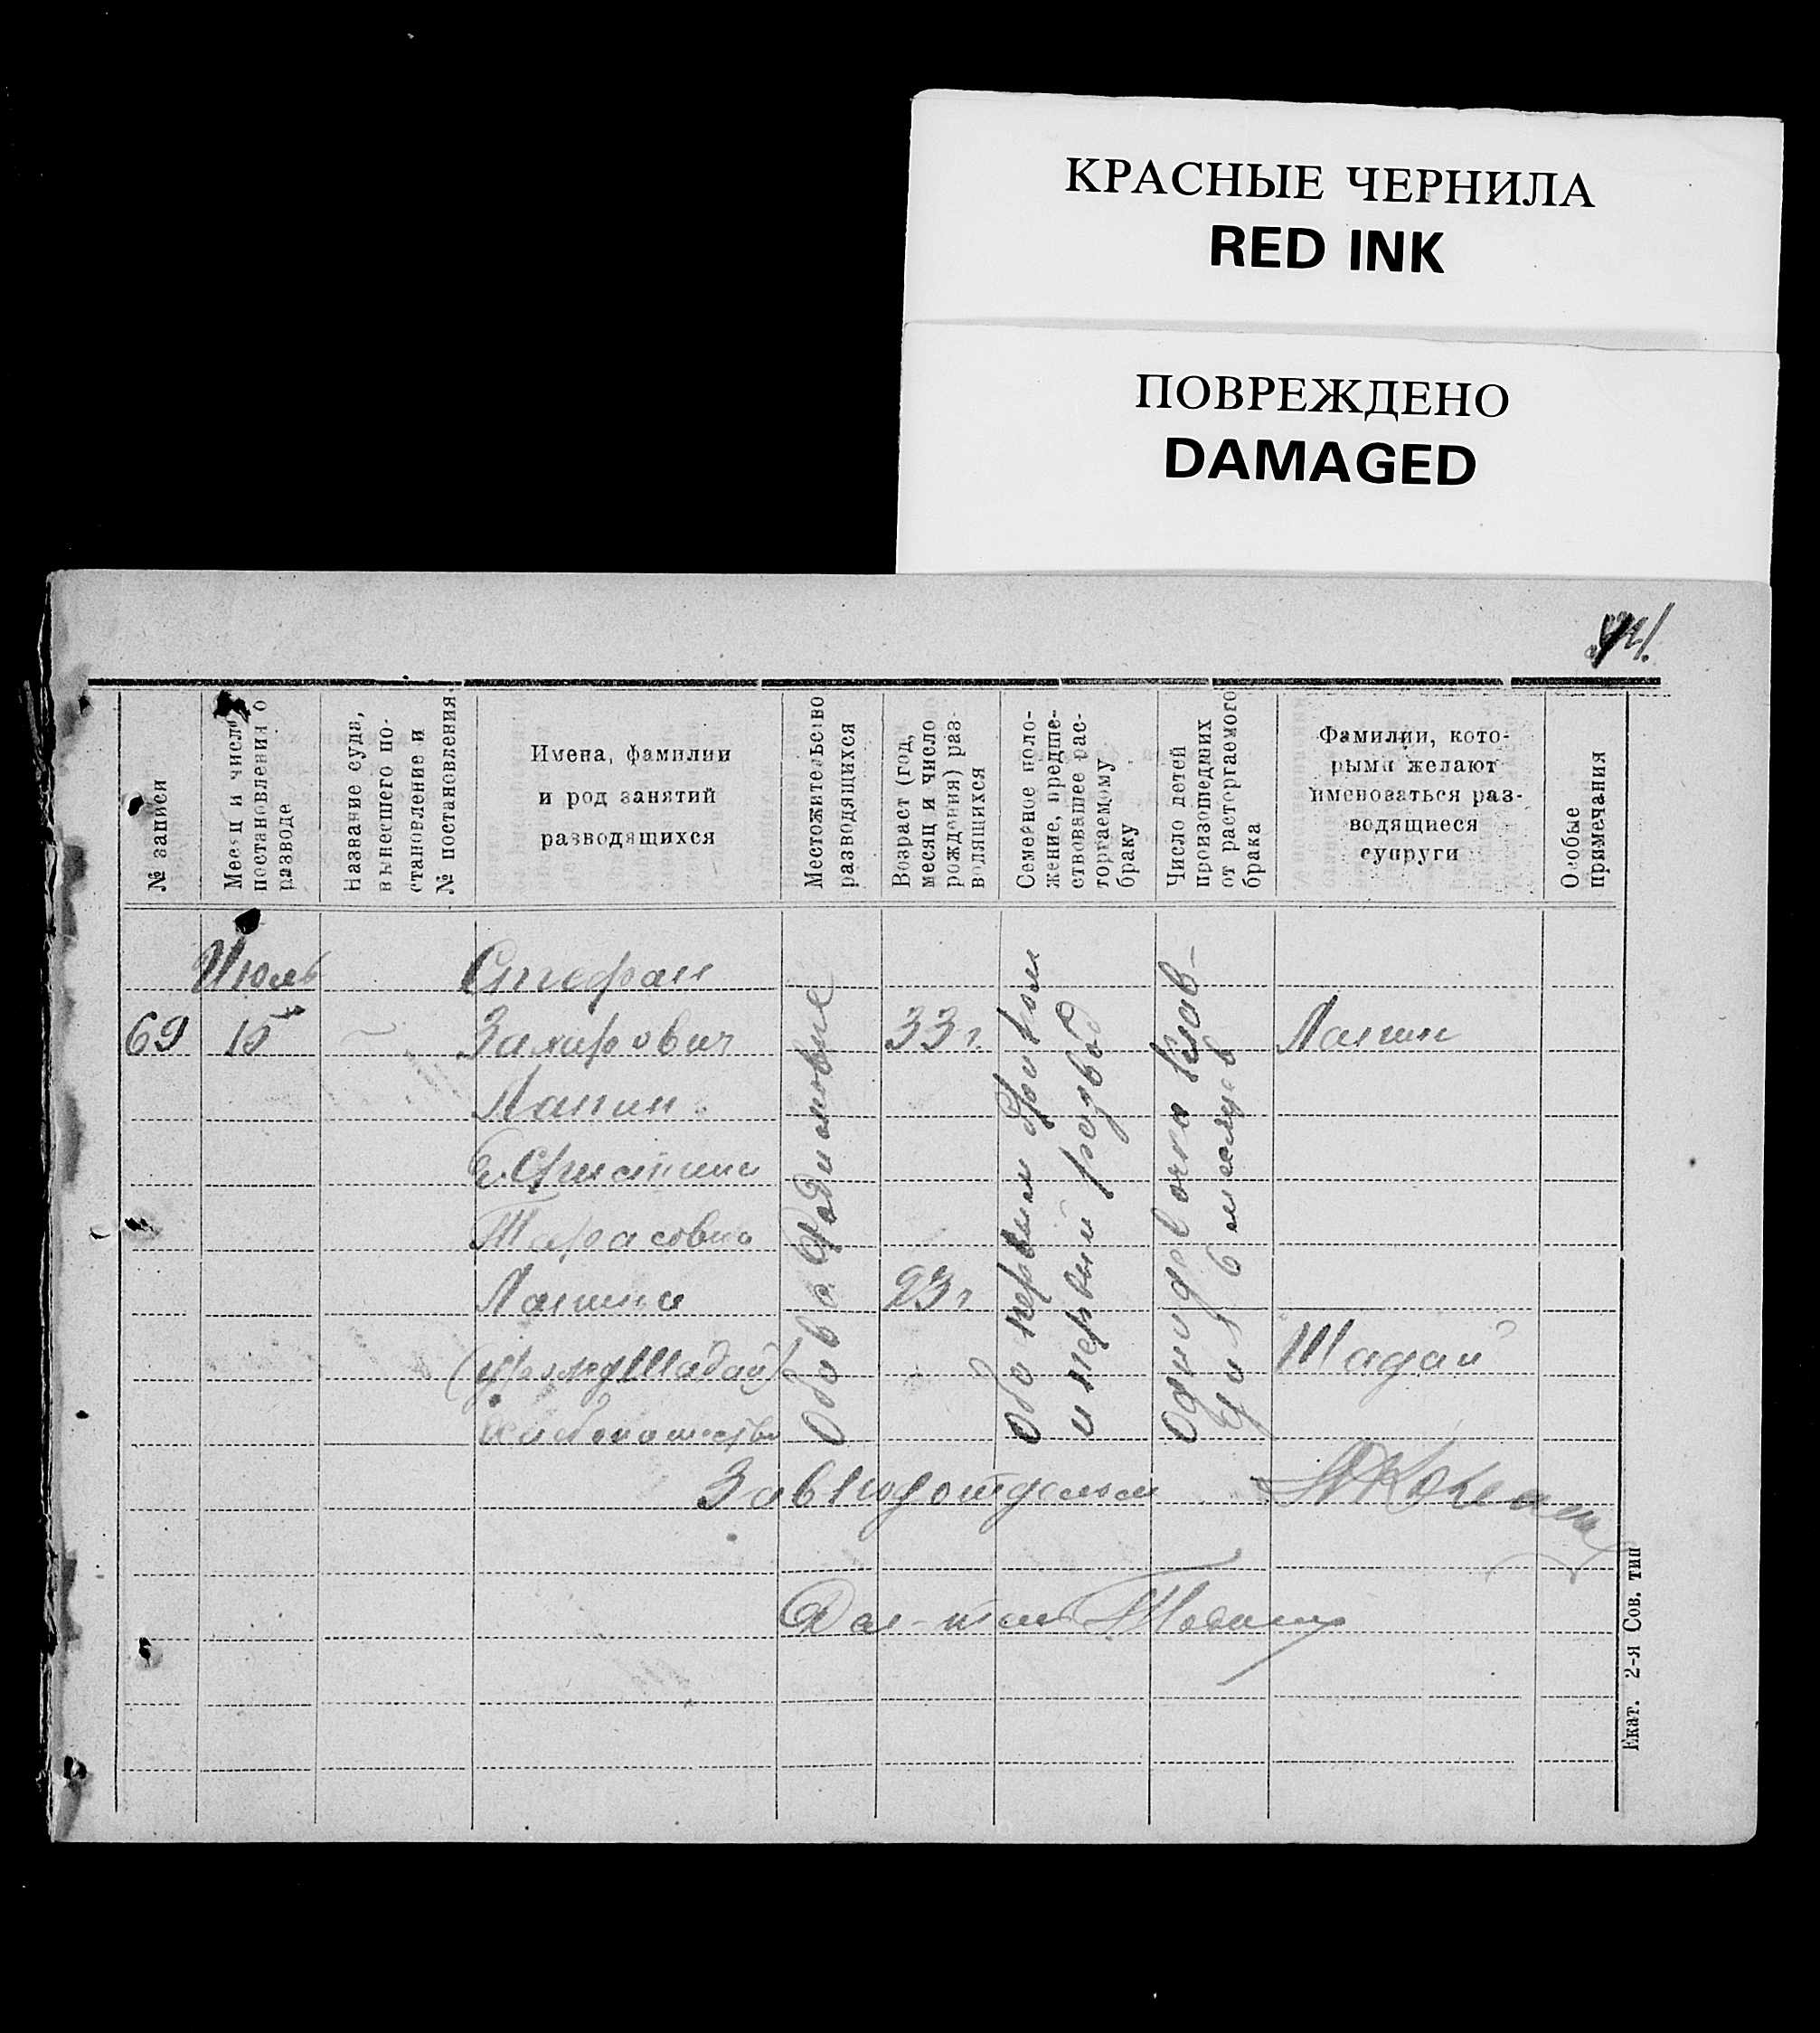 КРАСНЫЕ ЧЕРНИЛА
RED INK
ПОВРЕЖДЕНО
DAMAGED
№ записи
Месяц и число
постановления о
разводе
Название суда,
вынесшего по-
становление и
№ постановления
Имена, фамилии
и род занятий
разводящихся
Местожительство
разводящихся
Возраст (год,
месяц и число
рождения) раз-
водящихся
Семейное поло-
жение, предше-
ствовавшее рас-
торгаемому
браку
Число детей
происшедших
от расторгаемого
брака
Фамилии, кото-
рыми желают
именоваться раз-
водящиеся
супруги
Особые
примечания
Июль
69
15
Стефан
Захарович
Лапин
Тарасовна
Лапина
Шадай
хлебопашество
Оба в с.
33 г.
23 г.
Оба первым браком
и первый развод
6 месяцев
Лапин
Шадай
Зав подотделом
Екат. 2-я Сов. тип